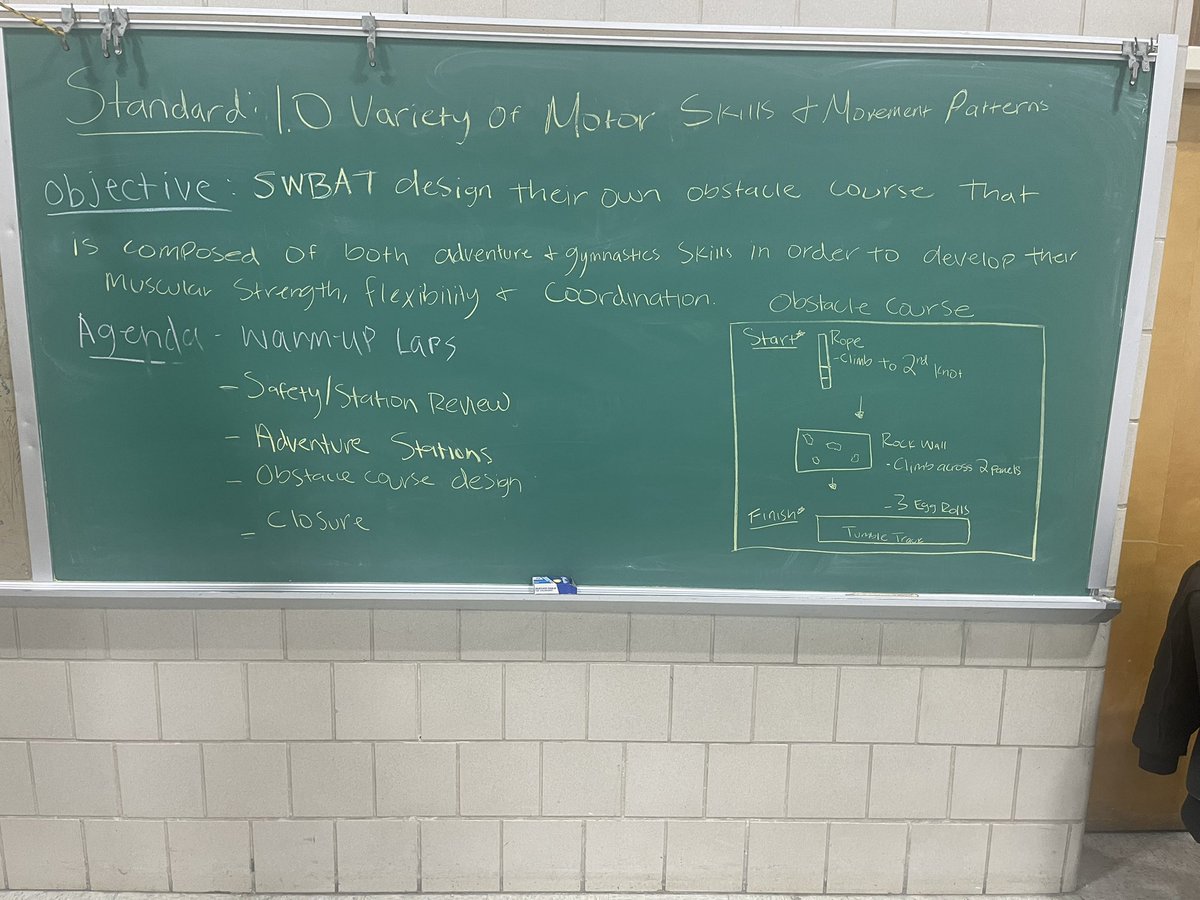 Standard: 1.0 Variety of Motor Skills & Movement Patterns
Objective: SWBAT design their own obstacle course that
is composed of both adventure & gymnastics skills in order to develop their
Muscular Strength, flexibility & Coordination.
Agenda - Warm-up Laps
- Safety/Station Review
- Adventure Stations
- Obstacle course design
- Closure
Obstacle Course
Start*
Rope
- Climb to 2nd Knot
Rock Wall
- Climb across 2 Panels
- 3 Egg Rolls
Finish*
Tumble Track